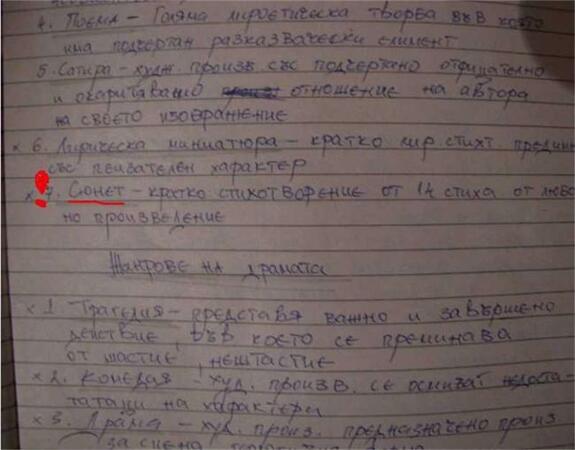 4. Поема – Голяма лироепическа творба във която
има подчертан разказвачески елимент
5. Сатира – худж. произв. със подчертано отрицателно
и окарикатващо отношение на автора
на своето изобранжение
x 6. Лирическа миниатюра – кратко лир. стихт.
със пейзателен характер
x 7. Сюнет – кратко стихотворение от 14 стиха от любо
но произведение
Жанрове на драмата
x 1. Трагедия – представя важно и завършено
действие, във което се преминава
от шастие, нештастие
x 2. Комедия – худ. произв. се осмиват недоста-
татаци на характери
x 3. Драма – худ. произ. предназначено произ.
за сцена